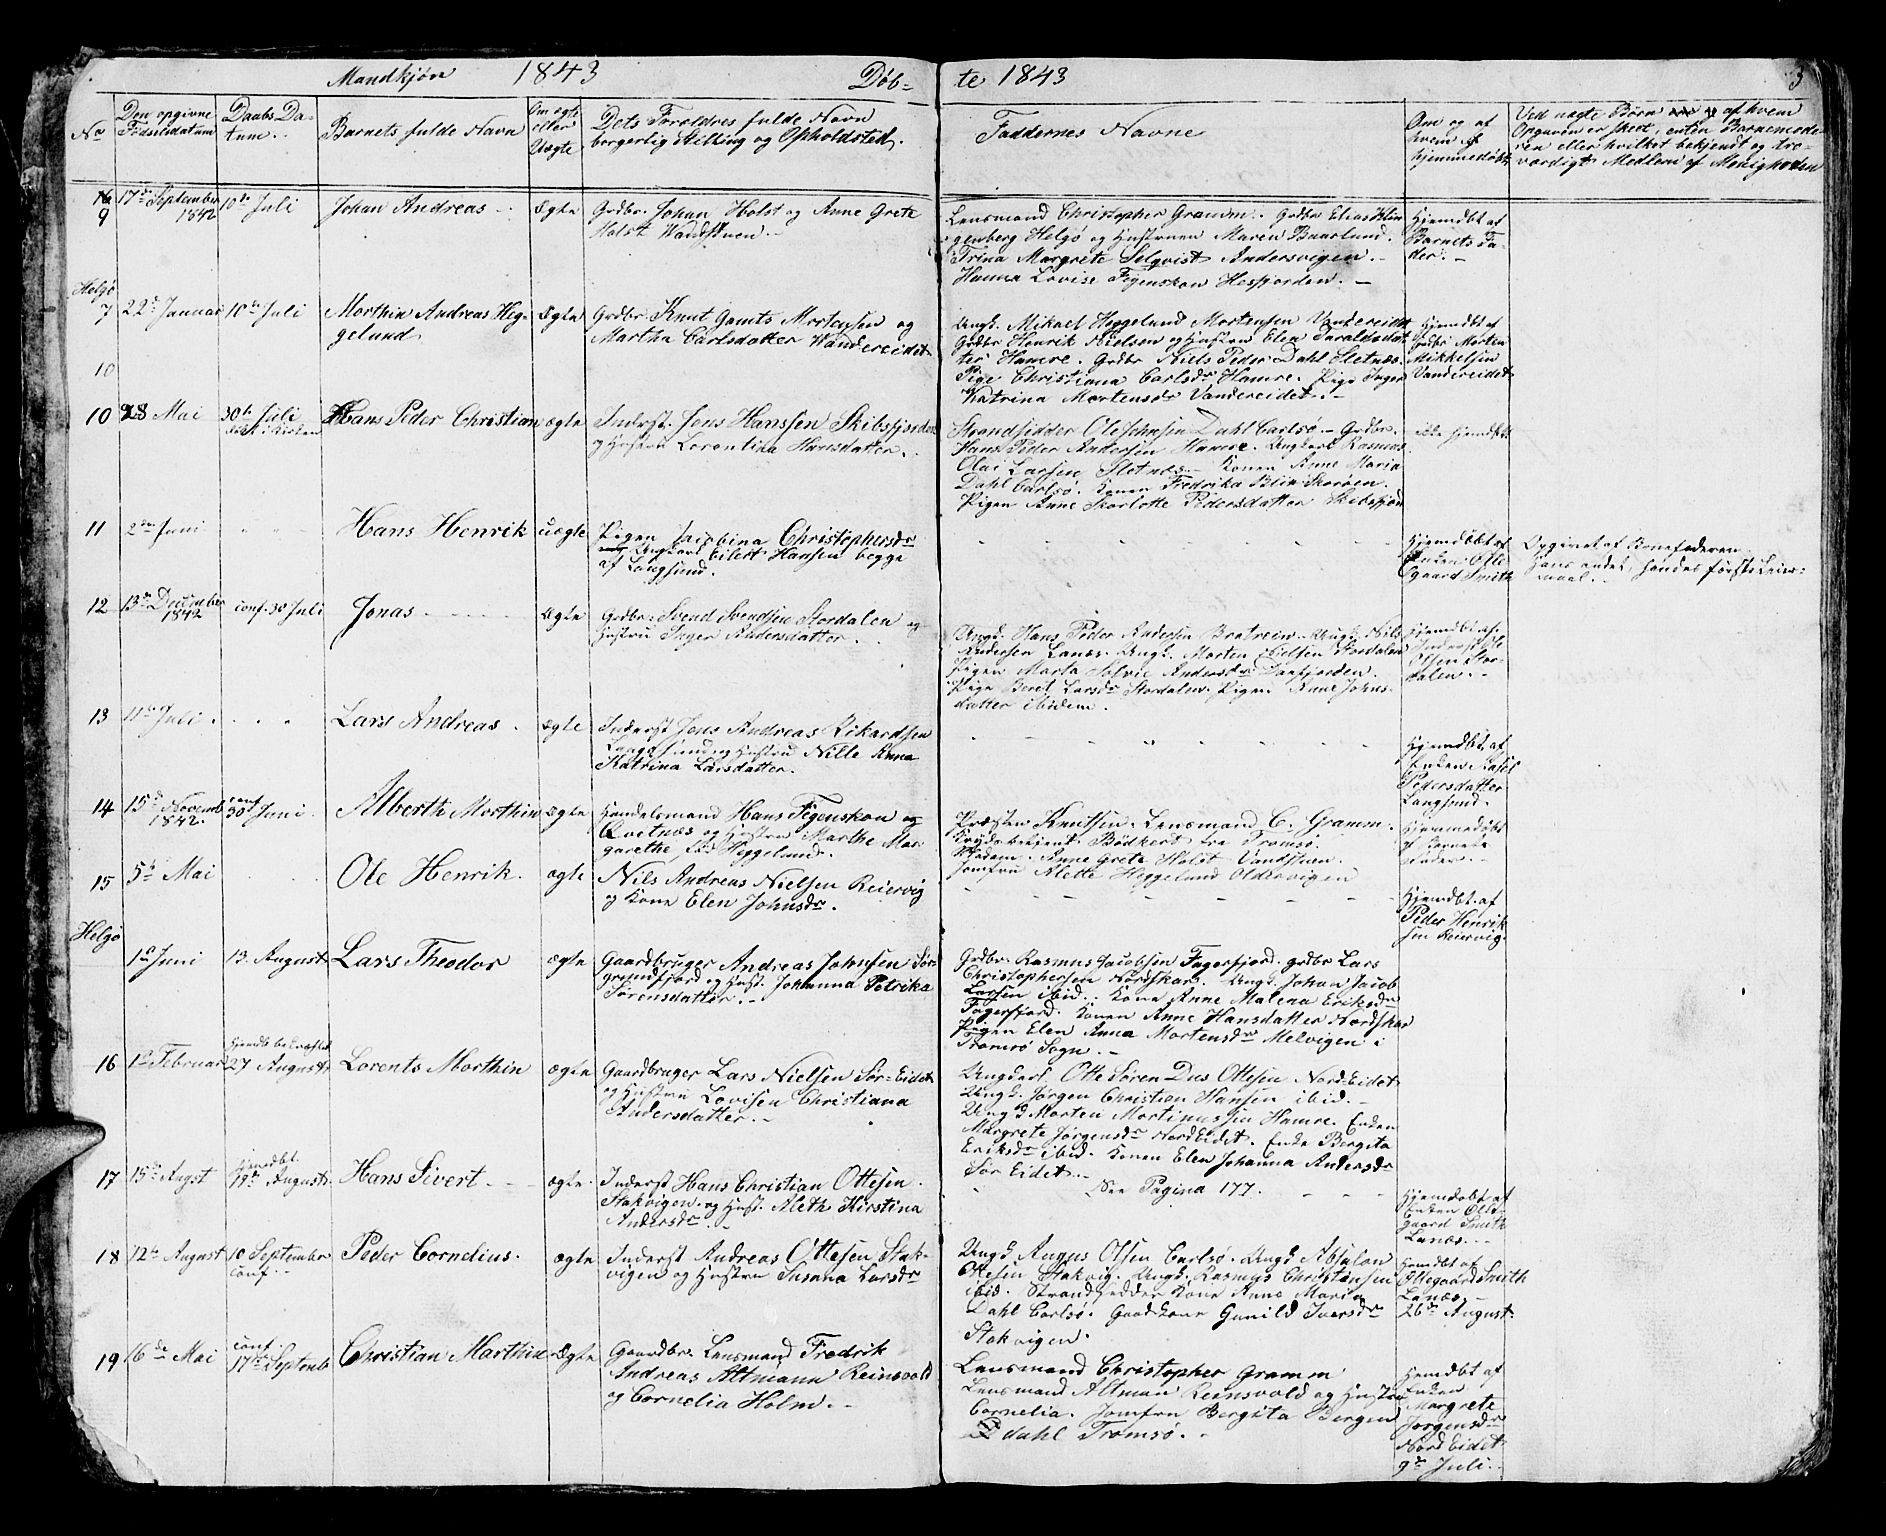 Mandkjøn 1843 Døb-
te 1843 3
No
Den opgivne Fødselsdatum
Daabs Datum.
Barnets fulde Navn
Om ægte eller Uægte
Dets Forældres fulde Navn borgerlig Stilling og Opholdsted.
Faddernes Navne
Om og af hvem hjemmedøbt
Ved uægte Børn af hvem Opgaven er skeet, enten Barnemoderen eller hvilket bekjendt og troværdigt Medlem af Menigheden
9 17de September 1842 10de Juli Johan Andreas Ægte
Grdbr. Johan Holst og Anne Grete
Holst Wandstuen.
Lensmand Christopher Gramm. Grdbr Elias Klin
genberg Helgø og Hustruen Maren Buarlund.
Trina Margrete Selqvist Andersvigen.
Hanna Lovise Figenskou Hesfjorden.
Hjemdbt af
Barnets Fa-
der.
Helgø
7 22de Januar 10de Juli Morthin Andreas Heg-
gelund
Ægte
Grdbr. Knut Gamts Mortensen og
Martha Carlsdatter Wandereidet
Ungk. Mikael Heggelund Mortensen Vandereidet
Grdbr Henrik Nielsen og Hustru Elen Taraldsdat
ter Hamre. Grdbr Niels Peder Dahl Sletnæs.
Pige Christiana Carlsdr Hamre. Pige Inger
Katrina Mortensdr Vandereidet.
Hjemdbt af
Grdbr Morten
Mikkelsen
Vandereidet
10
10 28 Mai 30te Juli Hans Peder Christian ægte
Inderst. Jens Hanssen Skibsfjorden
og Hustru Lorentina Hansdatter.
Strandsidder Ole Johnsen Dahl Carlsø. Grdbr.
Hans Peder Andersen Hamre. Ungkarl Rasmus
Olai Larsen Sletnæs. Konen Anne Maria
Dahl Carlsø. Konen Fredrika Blix Skorøen.
Pigen Anne Skarlotte Pedersdatter Skibsfjord
ikke hjemdbt.
11 2den Juni Hans Henrik uægte
Pigen Jacobina Christophersdr
Ungkarl Eilert Hansen begge
af Langsund.
Hjemdøbt af
Enken Olle
gaard Smith
Opgivet af Barnefaderen.
Hans andet, hendes første Leier-
maal.
12 13de December 1842 conf. 30 Juli Jonas Ægte
Grdbr. Svend Svendsen Stordalen og
Hustru Inger Andersdatter.
Ungk. Hans Peder Andersen Bratrein. Ungk. Nils
Andersen Lanæs. Ungk. Morten Nielsen Stordalen
Pigen Marta Solvie Andersdr Daafjorden.
Pige Beret Larsdr Stordalen. Pigen Anne Johns
datter ibidem.
Hjemdbt af
Inderst Ole
Olsen Stor-
dalen.
13 11te Juli Lars Andreas ægte
Inderst Jens Andreas Rikardsen
Langsund og Hustru Nille Anna
Katrina Larsdatter.
Hjemdbt af
Enken
Pedersdatter
Langsund.
14 15de Novemb 1842. conf 30te Juni Alberth Morthin ægte
Handelsmand Hans Figenskou og
Qvetnæs og Hustru Marthe Mar
garethe, fød Heggelund.
Præsten Knutsen. Lensmand C. Gramm.
Krydsbetjent Bødkert fra Tromsø.
Madam Anne Grete Holst Vandstuen.
Jomfru Alette Heggelund Oldervigen
Hjemmedøbt
af Barnets
Fader.
15 5te Mai Ole Henrik ægte
Nils Andreas Nielsen Reiervig
og Kone Elen Johnsdr.
Hjemdbt. af
Peder Henrik
sen Reiervig.
Helgø
1ste Juni 13. August Lars Theodor ægte
Gaardbruger Andreas Johnsen Sør
grundfjord og Hust. Johanna Petrika
Sørensdatter.
Grdbr. Rasmus Jacobsen Fagerfjord. grdbr Lars
Christophersen Nordskar. Ungk. Johan Jacob
Larsen ibid. Kone Anne Malena Eriksdr
Fagerfjord. Konen Anne Hansdatter Nordskar
Pigen Elen Anna Mortensdr Melvigen i
Tromsø Sogn.
16 1ste Februar Hjemdb bekræftet 27 August Lorents Morthin ægte
Gaardbruger Lars Nielsen Sør-Eidet
og Hustru Lovise Christiana
Andersdatter.
Ungkarl Otte Søren Dus Ottesen Nord-Eidet
Ungk. Jørgen Christian Hansen ibid.
Ungk Morten Mortinussen Hamre. Enken
Margrete Jørgensdr Nord Eidet. Enke Bergita
Eriksdr ibid. Konen Elen Johanna Andersdr
Sør Eidet.
17 15de Augst Hjemdbt. 19de August Hans Sivert ægte
Inderst Hans Christian Ottesen
Stakvigen og Hust. Aleth Kirstina
Andersdr.
See Pagina 177.
Hjemdøbt af
Enken Olle-
gaard Smith
Lanæs.
18 12te August 10 September conf. Peder Cornelius. ægte
Inderst Andreas Ottesen Stak-
vigen og Hustru Susanna Larsdr
Ungk August Olsen Carlsø. Ungk Absalon
Ottesen Stakvig. Ungk. Rasmus Christensen
ibid. Strandsidder Kone Anne Maria
Dahl Carlsø. Gaardkone Gunild Iversdr
Stakvigen.
Hemdbt af
Ollegaard Smith
Lanæs.
26de August
19 16de Mai conf 17de Septemb Christian Marthin Ægte
Gaardbr. Lensmand Fredrik
Andreas Altmann Reinsvold
og Cornelia Holm.
Lensmand Christopher Gramm
Lensmand Altman Reinsvold og Hustru
Cornelia. Jomfru Bergita Bergen
dahl Tromsø.
Hemdbt af
Enken
Margrete
Jørgensdr
Nord Eidet
9de Juli.